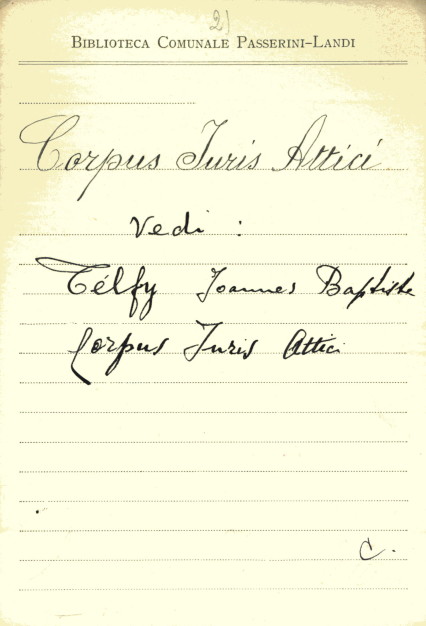 2)
BIBLIOTECA COMUNALE PASSERINI-LANDI
Corpus Juris Attici
Vedi :
Télfy Joannes Baptista
Corpus Juris Attici
C.